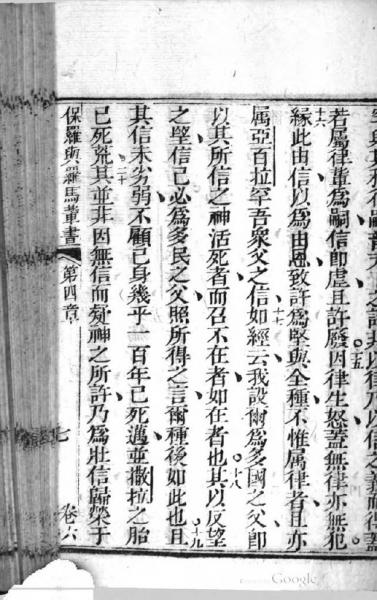 若屬律輩為嗣信即虛且許廢因律生怒蓋無律亦無犯
十五
十六
緣此由信以為由恩致許為堅與全種不惟屬律者且亦
屬亞百拉罕吾眾父之信如經云我設爾為多國之父即
十七
以其所信之神活死者而召不在者如在者也其以反望
十八
之堅信己必為多民之父照所得之言爾種後如此也且
十九
其信未劣弱不顧己身幾乎一百年已死邁並撒拉之胎
已死荒其並非因無信而疑神之所許乃為壯信歸榮于
二十
保羅與羅馬輩書
第四章
七
卷六
Google